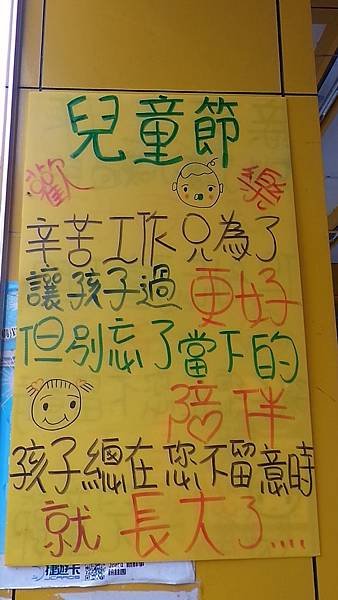 兒童節
歡 樂
辛苦工作只為了
讓孩子過更好
但別忘了當下的
陪伴
孩子總在您不留意時
就長大了....
捷遊卡